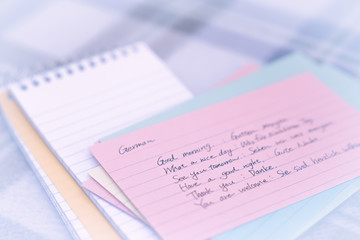 German
Good morning. Guten morgen
What a nice day. Was für
See you tomorrow. Sehen uns morgen
Have a good night. Gute Nacht
Thank you : Danke
You are welcome : Sie sind herzlich